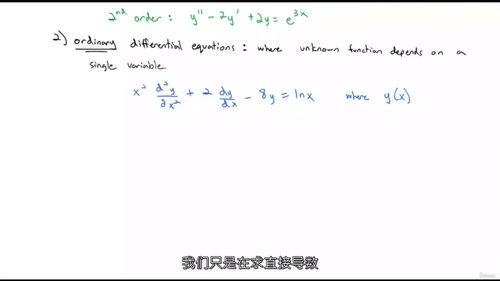 2nd order: y'' - 2y' + 2y = e^{3x}
2) ordinary differential equations: where unknown function depends on a
single variable.
x² d²y/dx² + 2 dy/dx - 8y = ln x where y(x)
我们只是在求直接导数